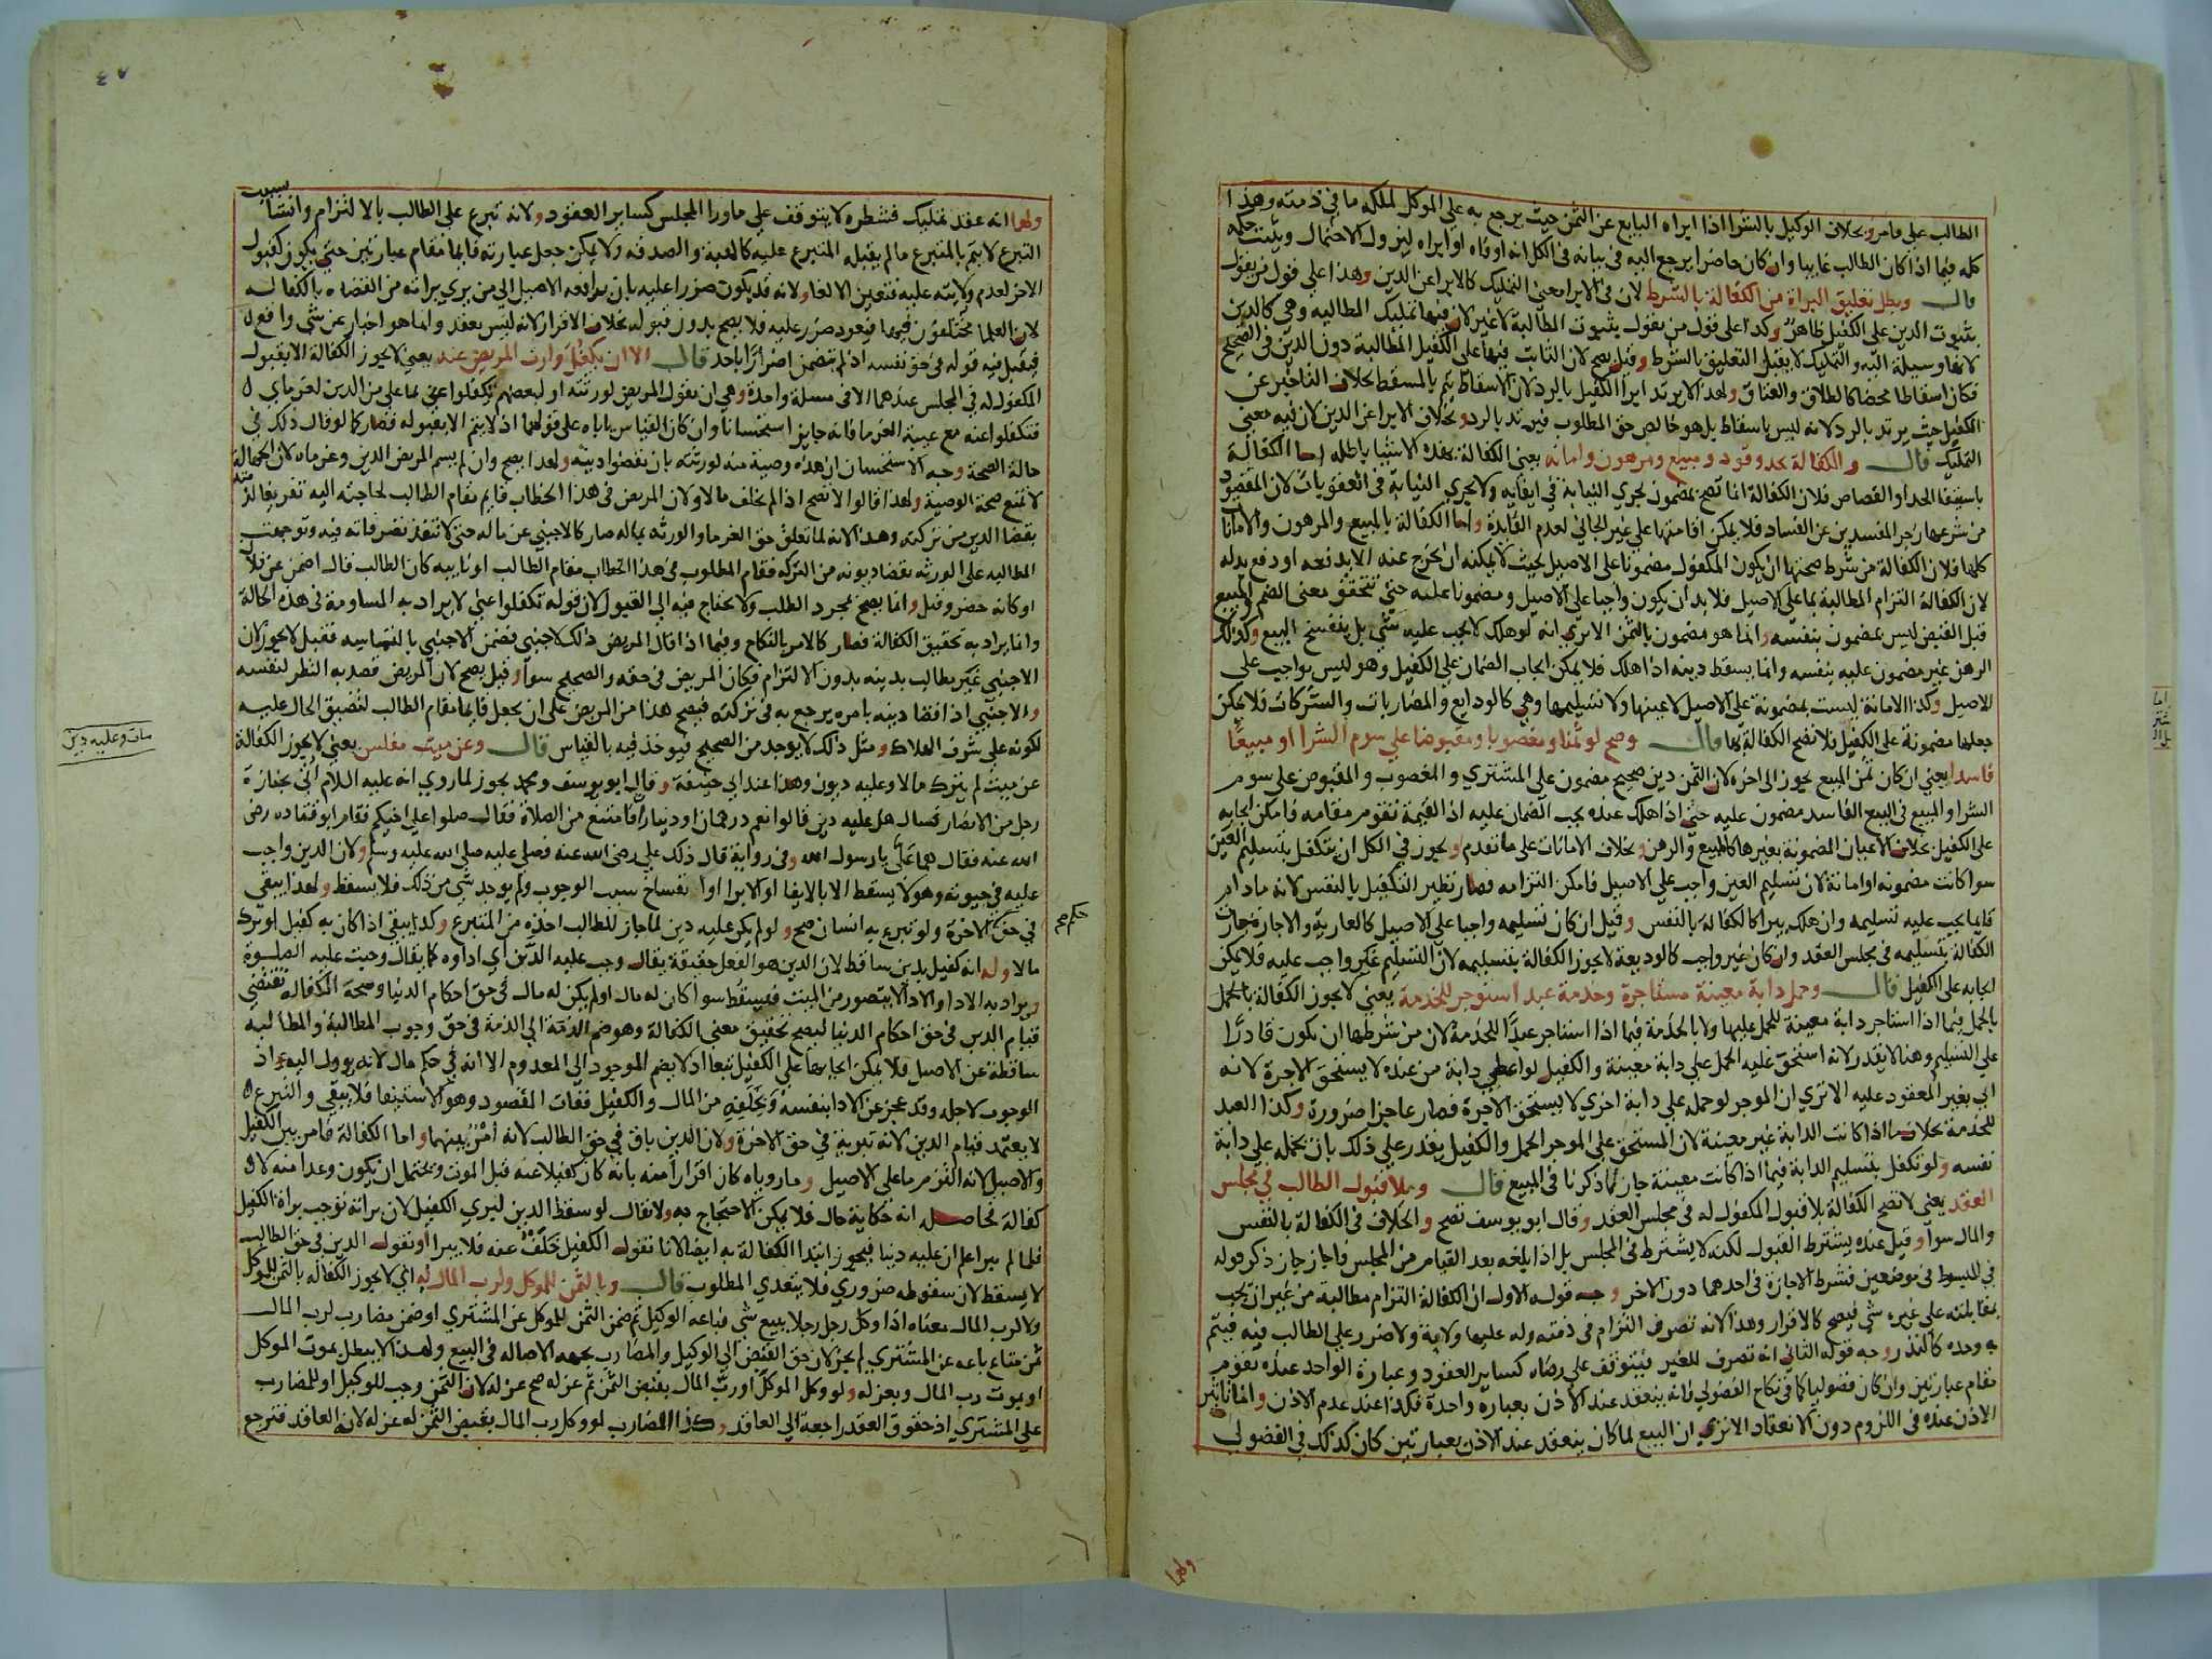 الطالب على ما مر وبخلاف الوكيل بالشرا اذا ابراه البايع عن الثمن حيث يرجع به على الموكل لملكه ما في ذمته وهذا
كله فيما اذا كان الطالب غايبا وان كان حاضرا يرجع اليه في بيانه في الكل انه اوفاه او ابراه ليزول الاحتمال ويثبت حكمه
قال وبطل تعليق البراة من الكفالة بالشرط لان في الابرا معنى التمليك كالابرا عن الدين وهذا على قول من يقول
بثبوت الدين على الكفيل ظاهر وكذا على قول من يقول بثبوت المطالبة لا غير لان فيها تمليك المطالبه وهي كالدين
لانها وسيلة اليه والتمليك لا يقبل التعليق بالشرط وقيل يصح لان الثابت فيها على الكفيل المطالبة دون الدين في الصحيح
فكان اسقاطا محضا كالطلاق والعتاق ولهذا لا يرتد ابرا الكفيل بالرد لان الاسقاط يتم بالمسقط بخلاف التاخير عن
الكفيل حيث يرتد بالرد لانه ليس باسقاط بل هو خالص حق المطلوب فيرتد بالرد وبخلاف الابرا عن الدين لان فيه معنى
التمليك قال والكفالة بحد وقود ومبيع ومرهون وامانه يعني الكفالة بهذه الاشيا باطله اما الكفالة
باستيفا الحد او القصاص فلان الكفالة انما تصح بمضمون تجري النيابة في ايفايه ولا تجري النيابة في العقوبات لان المقصود
من شرعها زجر المفسدين عن الفساد فلا يمكن اقامتها على غير الجاني لعدم الفايدة واما الكفالة بالمبيع والمرهون والامانا
كلها فلان الكفالة من شرط صحتها ان يكون المكفول مضمونا على الاصيل بحيث لا يمكنه ان يخرج عنه الا بدفعه او دفع بدله
لان الكفالة التزام المطالبة بما على الاصيل فلا بد ان يكون واجبا على الاصيل ومضمونا عليه حتى تتحقق معنى الضم والمبيع
قبل القبض ليس بمضمون بنفسه وانما هو مضمون بالثمن الا ترى انه لو هلك لا يجب عليه شي بل ينفسخ البيع وكذلك
الرهن غير مضمون عليه بنفسه وانما يسقط دينه اذا هلك فلا يمكن ايجاب الضمان على الكفيل وهو ليس بواجب على
الاصيل وكذا الامانة ليست بمضمونة على الاصيل لا عينها ولا تسليمها وهي كالودايع والمضاربات والشركات فلا يمكن
جعلها مضمونة على الكفيل فلا تصح الكفالة بها قال وصح لو ثمنا ومغصوبا ومقبوضا على سوم الشرا او مبيعا
فاسدا يعني ان كان ثمن المبيع يجوز الى اخره لان الثمن دين صحيح مضمون على المشتري والمغصوب والمقبوض على سوم
الشرا والمبيع في البيع الفاسد مضمون عليه حتى اذا هلك عنده يجب الضمان عليه اذ القيمة تقوم مقامه فامكن ايجابه
على الكفيل بخلاف الاعيان المضمونة بغيرها كالمبيع والرهن وبخلاف الامانات على ما تقدم ويجوز في الكل ان يتكفل بتسليم العين
سوا كانت مضمونه او امانة لان تسليم العين واجب على الاصيل فامكن التزامه فصار نظير التكفيل بالنفس لانه ما دام
قايما يجب عليه تسليمه وان هلك يبرا كالكفالة بالنفس وقيل ان كان تسليمه واجبا على الاصيل كالعارية والاجارة جازت
الكفالة بتسليمه في مجلس العقد وان كان غير واجب كالوديعة لا يجوز الكفالة بتسليمه لان التسليم غير واجب عليه فلا يمكن
ايجابه على الكفيل قال وحمل دابة معينة مستاجرة وخدمة عبد استوجر للخدمة يعني لا يجوز الكفالة بالحمل
بالحمل فيما اذا استاجر دابة معينة للحمل عليها ولا بالخدمة فيما اذا استاجر عبدا للخدمة لان من شرطها ان يكون قادرا
على التسليم وهنا لا يقدر لانه استحق عليه الحمل على دابة معينة والكفيل لو اعطى دابة من عنده لا يستحق الاجرة لانه
اتى بغير المعقود عليه الا ترى ان الموجر لو حمله على دابة اخرى لا يستحق الاجرة فصار عاجزا ضرورة وكذا العبد
للخدمة بخلاف ما اذا كانت الدابة غير معينة لان المستحق على الموجر الحمل والكفيل يقدر على ذلك بان يحمله على دابة
نفسه ولو تكفل بتسليم الدابة فيما اذا كانت معينة جاز لما ذكرنا في المبيع قال وبلا قبول الطالب في مجلس
العقد يعني لا تصح الكفالة بلا قبول المكفول له في مجلس العقد وقال ابو يوسف تصح والخلاف في الكفالة بالنفس
والمال سوآ وقيل عنده يشترط القبول لكنه لا يشترط في المجلس بل اذا بلغه بعد القيام من المجلس فاجاز جاز ذكر قوله
في المبسوط في موضعين فشرط الاجازة في احدهما دون الاخر وجه قوله الاول ان الكفالة التزام مطالبة من غير ان يجب
بمقابلته على غيره شي فيصح كالاقرار وهذا لانه تصرف التزام في ذمته وله عليها ولاية ولا ضرر على الطالب فيه فيتم
به وحده كالنذر وجه قوله الثاني انه تصرف للغير فيتوقف على رضاه كساير العقود وعبارة الواحد عنده تقوم
مقام عبارتين وان كان فضوليا كما في نكاح الفضولي فانه ينعقد عند الاذن بعباره واحدة فكذا عند عدم الاذن وانما تاثير
الاذن عنده في اللزوم دون الانعقاد الا ترى ان البيع لما كان ينعقد عند الاذن بعبارتين كان كذلك في الفضولي
ولهما
٤٧
ولهما انه عقد تمليك فشطره لا يتوقف على ماورا المجلس كساير العقود ولانه تبرع على الطالب بالالتزام وانشا سبب
التبرع لا يتم بالمتبرع ما لم يقبله المتبرع عليه كالهبة والصدقه ولا يمكن جعل عبارته قايما مقام عبارتين حتى يكون كقبول
الاخر لعدم ولايته عليه فتعين الالغا ولانه قد يكون ضررا عليه بان يرافعه الاصيل الى من يرى براته من القضاه بالكفاله
لان العلما مختلفون فيها فيعود ضرر عليه فلا يصح بدون قبوله بخلاف الاقرار لانه ليس بعقد وانما هو اخبار عن شي واقع
فيقبل فيه قوله في حق نفسه اذ لم يتضمن اضرارا باحد قال الا ان يكفل وارث المريض عنه يعني لا يجوز الكفالة الا بقبول
المكفول له في المجلس عندهما الا في مسلة واحدة وهي ان يقول المريض لورثته او لبعضهم تكفلوا عني بما علي من الدين لغرماي
فتكفلوا عنه مع غيبة الغرما فانه جايز استحسانا وان كان القياس ياباه على قولهما اذ لا يتم الا بقبوله فصار كما لو قال ذلك في
حالة الصحة وجه الاستحسان ان هذه وصية منه لورثته بان يقضوا دينه ولهذا يصح وان لم يسم المريض الدين وغرماه لان الجهالة
لا تمنع صحة الوصية ولهذا قالوا لا تصح اذا لم يخلف مالا ولان المريض في هذا الخطاب قايم مقام الطالب لحاجته اليه تفريغا لذمته
بقضا الدين من تركته وهذا لانه لما تعلق حق الغرما والورثه بماله صار كالاجنبي عن ماله حتى لا تنفذ تصرفاته فيه وتوجهت
المطالبه على الورثه بقضا ديونه من التركه فقام المطلوب في هذا الخطاب مقام الطالب او نايبه كان الطالب قال اضمن عن فلان
او كانه حضر وقبل وانما يصح بمجرد الطلب ولا يحتاج فيه الى القبول لان قوله تكفلوا عني لا يراد به المساومة في هذه الحالة
وانما يراد به تحقيق الكفالة فصار كالامر بالنكاح وفيما اذا قال المريض ذلك لاجنبي فضمن الاجنبي بالتماسه فقيل لا يجوز لان
الاجنبي غير مطالب بدينه بدون الالتزام فكان المريض في حقه والصحيح سوآ وقيل يصح لان المريض قصد به النظر لنفسه
والاجنبي اذا قضا دينه بامره يرجع به في تركته فيصح هذا من المريض على ان يجعل قايما مقام الطالب لتضيق الحال عليه
لكونه على شرف الهلاك ومثل ذلك لا يوجد من الصحيح فيوخذ فيه بالقياس قال وعن ميت مفلس يعني لا يجوز الكفالة
عن ميت لم يترك مالا وعليه ديون وهذا عند ابي حنيفة وقال ابو يوسف ومحمد يجوز لما روي انه عليه السلام اتي بجنازة
رجل من الانصار فسال هل عليه دين قالوا نعم درهمان او ديناران فامتنع من الصلاة فقال صلوا على اخيكم فقام ابو قتاده رضى
الله عنه فقال هما علي يا رسول الله وفي رواية قال ذلك علي رضى الله عنه فصلى عليه صلى الله عليه وسلم ولان الدين واجب
عليه في حيوته وهو لا يسقط الا بالايفا او الابرا او انفساخ سبب الوجوب ولم يوجد شي من ذلك فلا يسقط ولهذا يبقى
في حق الاخرة ولو تبرع به انسان صح ولو لم يكن عليه دين لما جاز للطالب اخذه من المتبرع وكذا يبقى اذا كان به كفيل او ترك
مالا وله انه كفيل بدين ساقط لان الدين هو الفعل حقيقة يقال وجب عليه الدين اي اداوه كما يقال وجبت عليه الصلوة
ويراد به الادا والادا لا يتصور من الميت فيسقط سوا كان له مال او لم يكن له مال في حق احكام الدنيا وصحة الكفالة تقتضي
قيام الدين في حق احكام الدنيا ليصح تحقيق معنى الكفالة وهو ضم الذمة الى الذمة في حق وجوب المطالبة والمطالبه
ساقطة عن الاصيل فلا يمكن ايجابها على الكفيل تبعا اذ لا يضم الموجود الى المعدوم الا انه في حكم مال لانه يوول اليه اذ
الوجوب لاجله وقد عجز عن الادا بنفسه وبخلفه من المال والكفيل ففات المقصود وهو الاستيفا فلا يبقى والتبرع
لا يعتمد قيام الدين لانه تبرئة في حق الاخرة ولان الدين باق في حق الطالب لانه امر بينهما واما الكفالة فامر بين الكفيل
والاصيل لانه التزم ما على الاصيل وما روياه كان اقرارا منه بانه كان كفيلا عنه قبل الموت ويحتمل ان يكون وعدا منه لا
كفالة فحاصله انه حكاية حال فلا يمكن الاحتجاج به ولا يقال لو سقط الدين لبري الكفيل لان براته توجب براة الكفيل
فلما لم يبرا علم ان عليه دينا فيجوز ابتدا الكفالة به ايضا لانا نقول الكفيل خلف عنه فلا يبرا او نقول الدين في حق الطالب
لا يسقط لان سقوطه ضروري فلا يتعدى المطلوب قال وبالثمن للموكل ولرب المال به اي لا يجوز الكفالة بالثمن للموكل
ولا لرب المال معناه اذا وكل رجل رجلا ببيع شي فباعه الوكيل ثم ضمن الثمن للموكل عن المشتري او ضمن مضارب لرب المال
ثمن متاع باعه عن المشتري لم يجز لان حق القبض الى الوكيل والمضارب بجهة الاصاله في البيع ولهذا لا يبطل بموت الموكل
او بموت رب المال وبعزله ولو وكل الموكل او رب المال بقبض الثمن ثم عزله صح عزله لان الثمن وجب للوكيل او للمضارب
على المشتري اذ حقوق العقد راجعة الى العاقد وكذا المضارب لو وكل رب المال بقبض الثمن له عزله لانه العاقد فترجع
مات وعليه دين
حكم